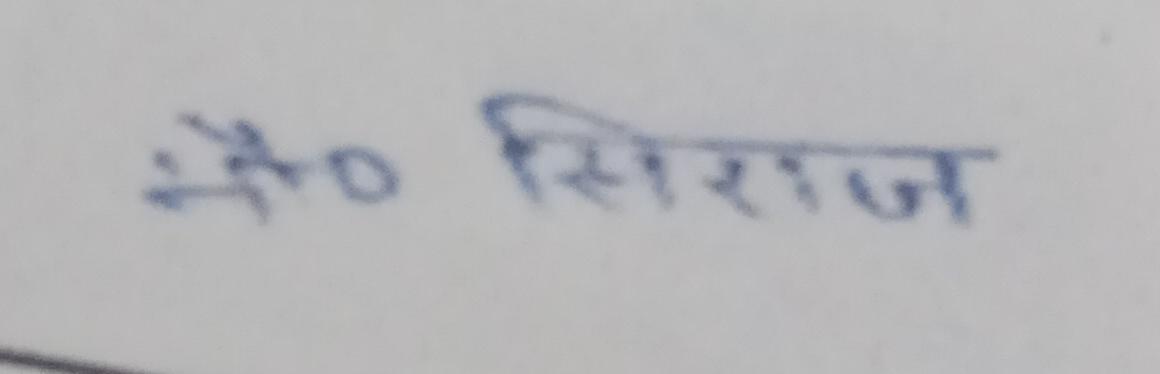 मो० सिराज